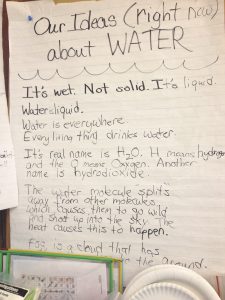 Our Ideas (right now)
about WATER
It's wet. Not solid. It's liquid.
Water is liquid.
Water is everywhere.
Every living thing drinks water.
It's real name is H2O. H means hydrogen
and the O means Oxygen. Another
name is hydrodioxide.
The water molecule splits
away from other molecules
which causes them to go wild
and shoot up into the sky. The
heat causes this to happen.
Fog is a cloud that has
the ground.